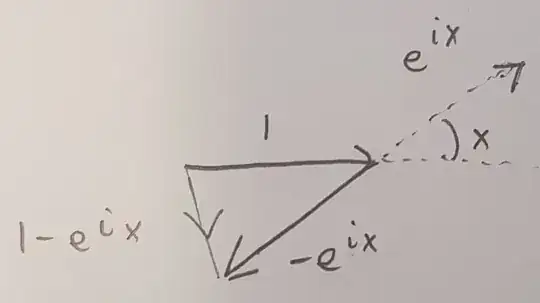 e^{ix}
1
x
1-e^{ix}
-e^{ix}